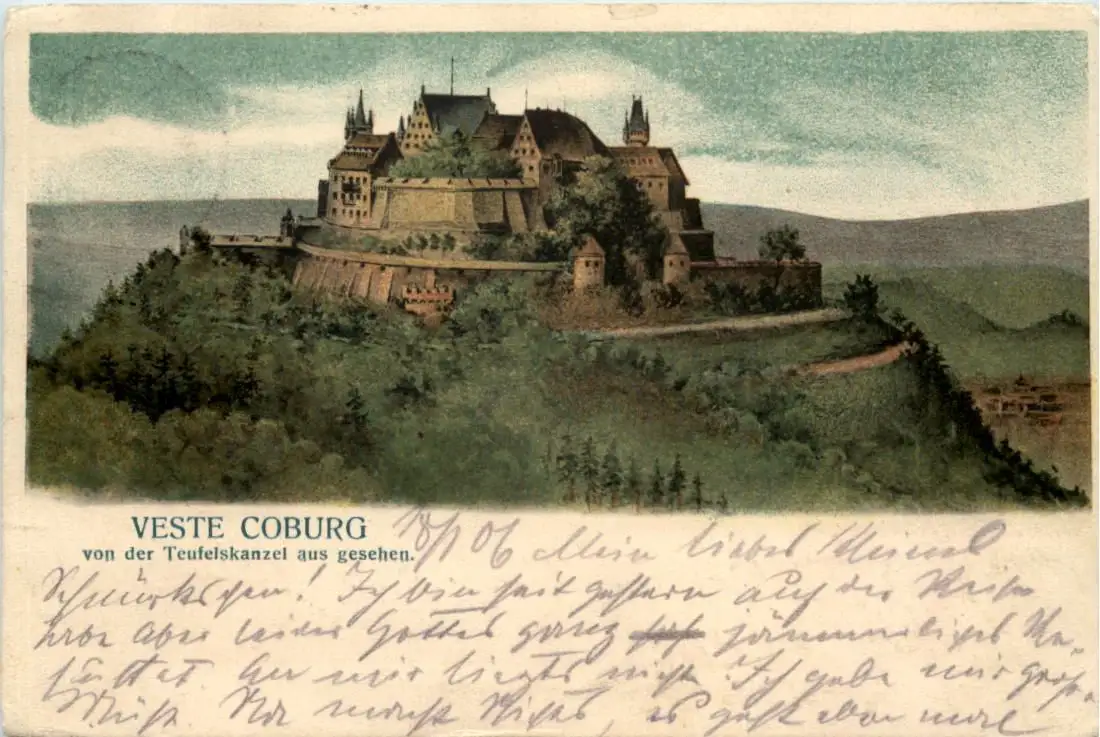 VESTE COBURG
von der Teufelskanzel aus gesehen.
18/1 06 Mein liebes kleines
Schnürksgen! Ich bin seit gestern auf der Reise
habe aber leider Gottes ganz jämmerliches
An mir liegts nicht. Ich gebe mir große
Müh. Na macht Nichts, es geht eben mal